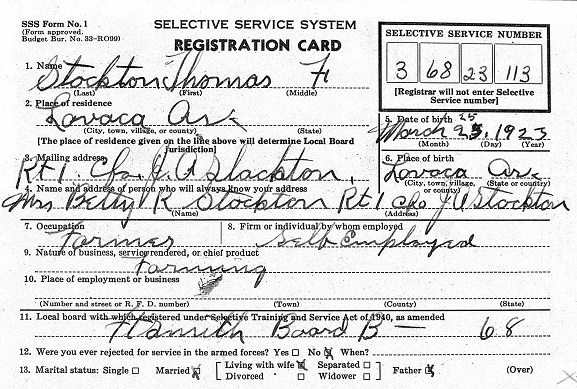 SSS Form No. 1
(Form approved.
Budget Bur. No. 33-RO99)
SELECTIVE SERVICE SYSTEM
REGISTRATION CARD
SELECTIVE SERVICE NUMBER
3 68 23 113
[Registrar will not enter Selective Service number]
1. Name Stockton Thomas F
(Last) (First) (Middle)
2. Place of residence
Lavaca Ar
(City, town, village, or county) (State)
[The place of residence given on the line above will determine Local Board jurisdiction]
5. Date of birth
March 25 1923
(Month) (Day) (Year)
3. Mailing address
Rt 1 J. A Stockton,
6. Place of birth
Lavaca Ar
(City, town, village, or county) (State or country)
4. Name and address of person who will always know your address
Mrs Betty K Stockton Rt 1 J A Stockton
(Name) (Address)
7. Occupation
Farmer
8. Firm or individual by whom employed
Self Employed
9. Nature of business, service rendered, or chief product
Farming
10. Place of employment or business
(Number and street or R. F. D. number) (Town) (County) (State)
11. Local board with which registered under Selective Training and Service Act of 1940, as amended
Board B — 68
12. Were you ever rejected for service in the armed forces? Yes □ No ☒ When?
13. Marital status: Single □ Married ☒ [Living with wife ☒ Separated □ Divorced □ Widower □] Father ☒ (Over)